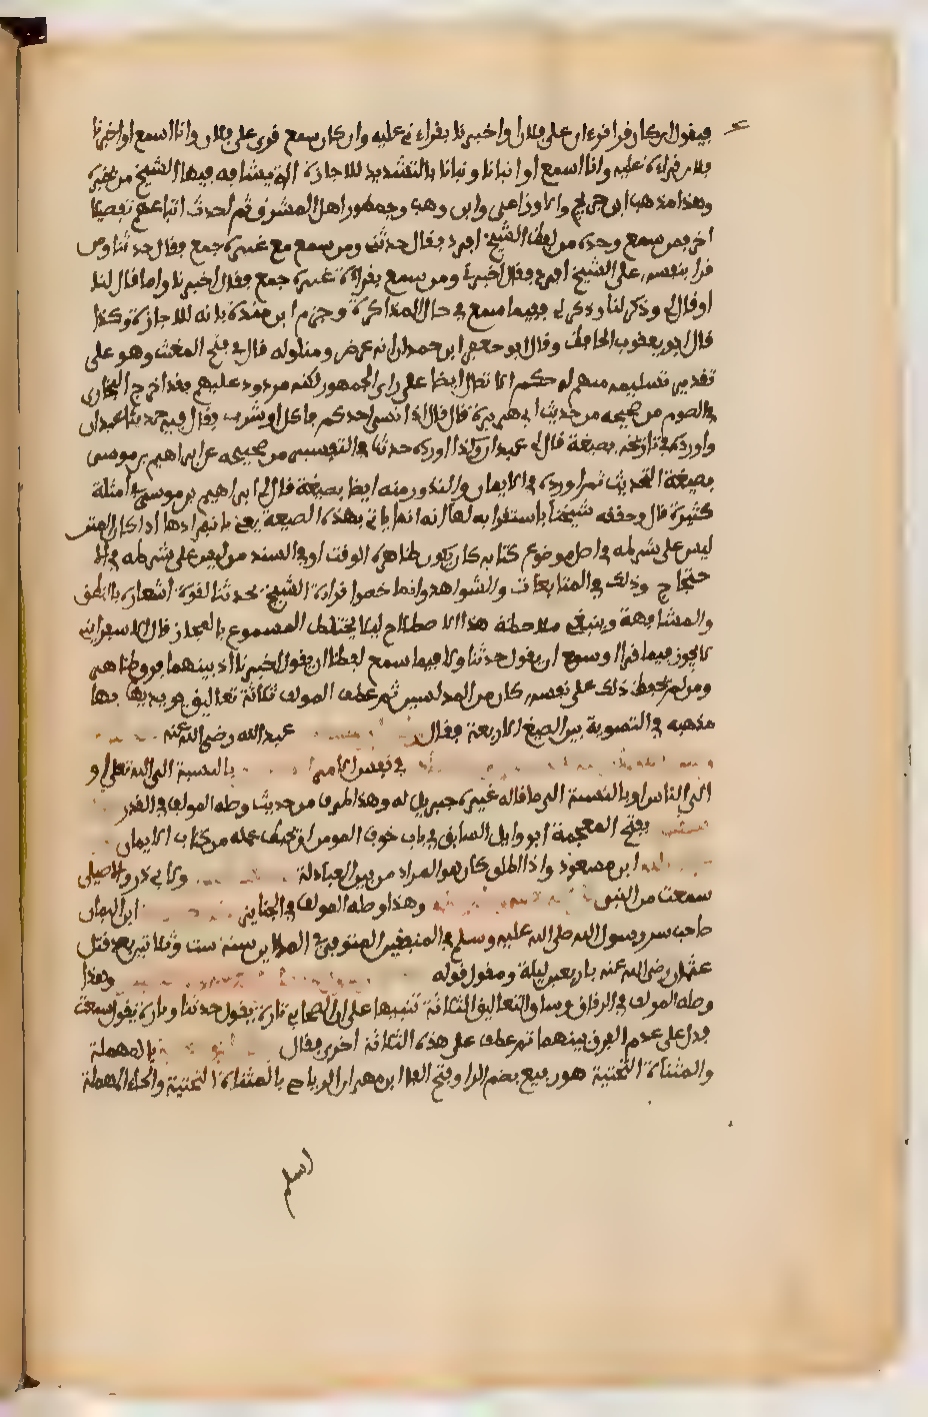 فيقول ان كان قرا قرات على فلان او اخبرنا بقراءتى عليه وان كان سمع قرى على فلان وانا اسمع او اخبرنا
فلان قراءة عليه وانا اسمع او انبانا ونبانا بالتشديد للاجازة التى يشافه بها الشيخ من يجيزه
وهذا مذهب ابن جريج والاوزاعى وابن وهب وجمهور اهل المشرق ثم احدث اتباعهم تفصيلا
اخر فمن سمع وحده من لفظ الشيخ افرد فقال حدثنى ومن سمع مع غيره جمع فقال حدثنا ومن
قرا بنفسه على الشيخ افرد فقال اخبرنى ومن سمع بقراءة غيره جمع فقال اخبرنا واما قال لنا
او قال لى وذكر لنا وذكر لى ففيما سمع فى حال المذاكرة وجزم ابن مندة بانه للاجازة وكذا
قال ابو يعقوب الحافظ وقال ابو جعفر ابن حمدان انه عرض ومناوله قال فى فتح المغيث وهو على
تقدير تسليمه منهم له حكم الاتصال ايضا على راى الجمهور لكنه مردود عليهم فقد اخرج البخارى
فى الصوم من صحيحه من حديث ابى هريرة قال قال اذا نسى احدكم فاكل او شرب فقال فيه حدثنا عبدان
واورده فى تاريخه بصيغة قال لى عبدان وكذا اورد حديثا فى التفسير من صحيحه عن ابراهيم بن موسى
بصيغة التحديث ثم اورده فى الايمان والنذور منه ايضا بصيغة قال لى ابراهيم بن موسى فى امثلة
كثيرة قال وحققه شيخنا باستقرائه لها انه انما ياتى بهذه الصيغة يعنى بانفرادها اذا كان المتن
ليس على شرطه فى اصل موضوع كتابه كان يكون ظاهره الوقف او فى السند من ليس على شرطه فى الا
حتجاج وذلك فى المتابعات والشواهد وانما خصوا قراءة الشيخ بحدثنا لقوة اشعاره بالنطق
والمشافهة وينبغى ملاحظة هذا الاصطلاح ليلا يختلط المسموع بالمجاز قال الاسفراينى
لا يجوز فيما قرا او سمع ان يقول حدثنا ولا فيما سمع لفظا ان يقول اخبرنا اذ بينهما فروق ظاهر
ومن لم يحفظ ذلك على نفسه كان من المدلسين ثم عطف المولف ثلاثة تعاليق يويد بها
مذهبه فى التسوية بين الصيغ الاربعة فقال عبد الله رضى الله عنه
فى نفس الامر بالنسبة الى الله تعالى او
الى الناس او بالنسبة الى ما قاله غيره جبريل له وهذا طرف من حديث وصله المولف فى القدر
بفتح المعجمة ابو وايل السابق فى باب خوف المومن ان يحبط عمله من كتاب الايمان
ابن مسعود واذا اطلق كان هو المراد من بين العبادلة ولابى ذر والاصيلى
سمعت من النبى وهذا وصله المولف فى الجنايز ابن اليمان
صاحب سر رسول الله صلى الله عليه وسلم فى المنافقين المتوفى فى المداين سنة ست وثلاثين بعد قتل
عثمان رضى الله عنه باربعين ليلة ومقول قوله وهذا
وصله المولف فى الرقاق وساق التعاليق الثلاثة تنبيها على ان الصحابى تارة يقول حدثنا وتارة يقول سمعت
فدل على عدم الفرق بينهما ثم عطف على هذه الثلاثة اخرى فقال بالمهملة
والمثناة التحتية هو رفيع بضم الرا وفتح الفا ابن مهران الرياحى بالمثناة التحتية والحاء المهملة
اسلم